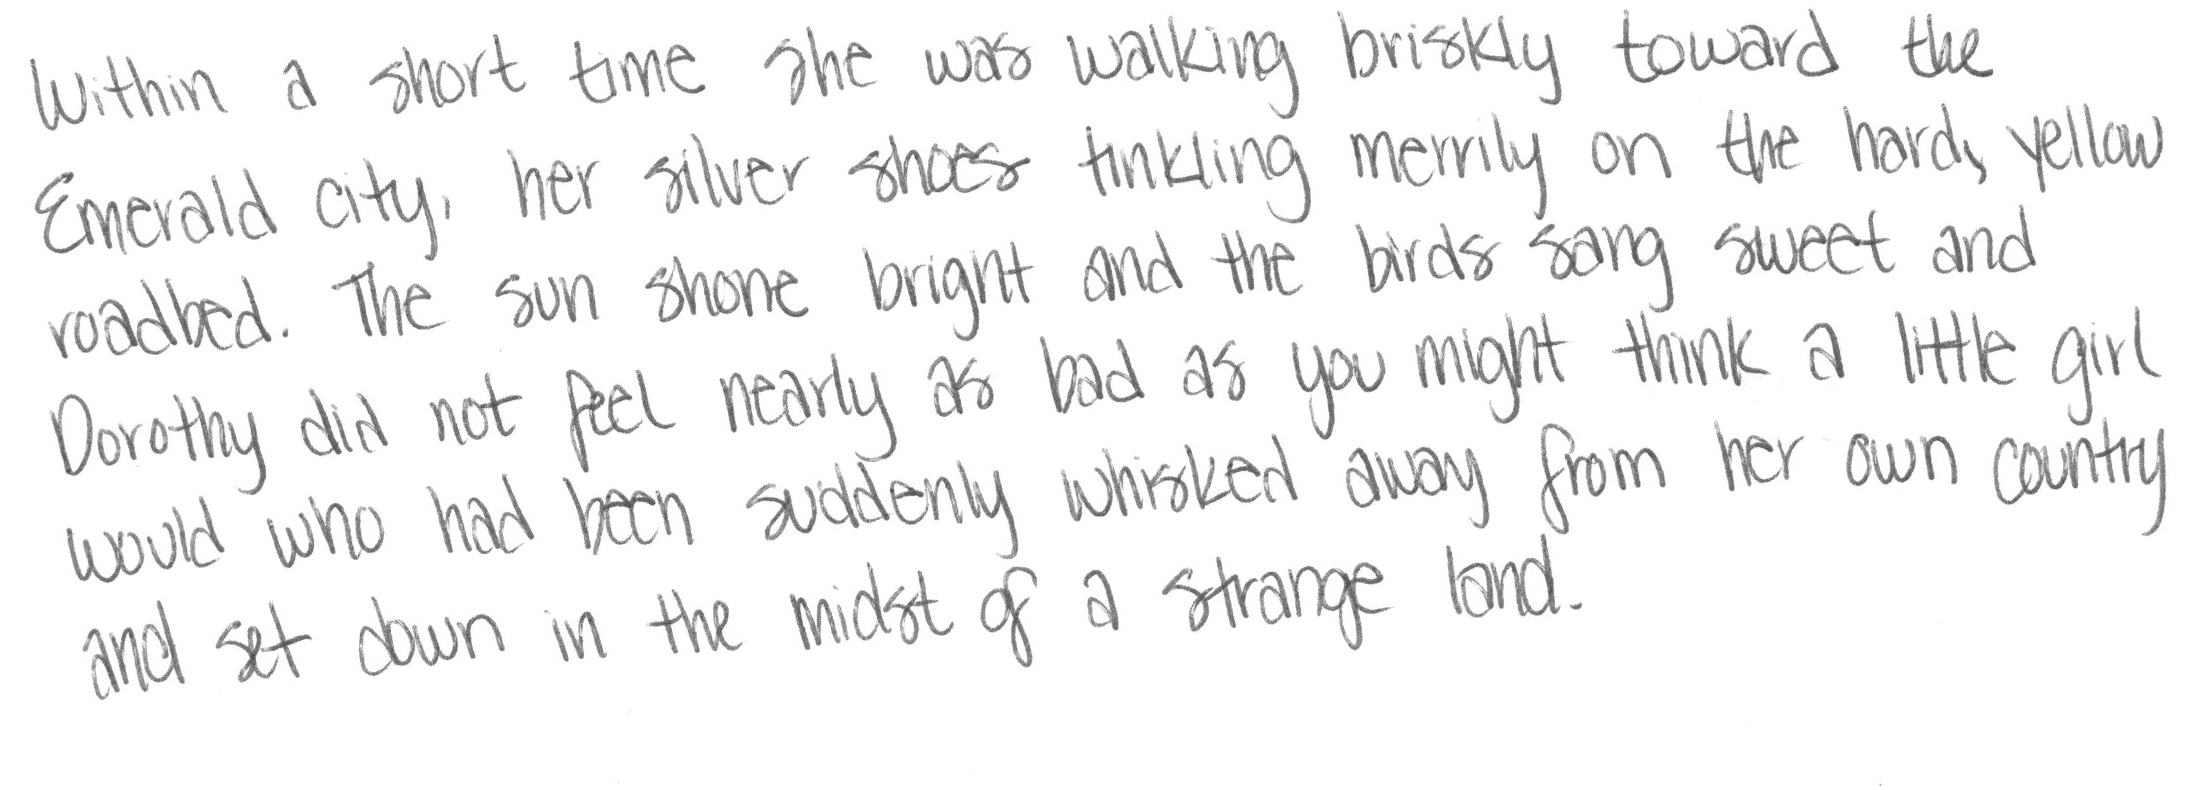 Within a short time she was walking briskly toward the
Emerald city, her silver shoes tinkling merrily on the hard, yellow
roadbed. The sun shone bright and the birds sang sweet and
Dorothy did not feel nearly as bad as you might think a little girl
would who had been suddenly whisked away from her own country
and set down in the midst of a strange land.